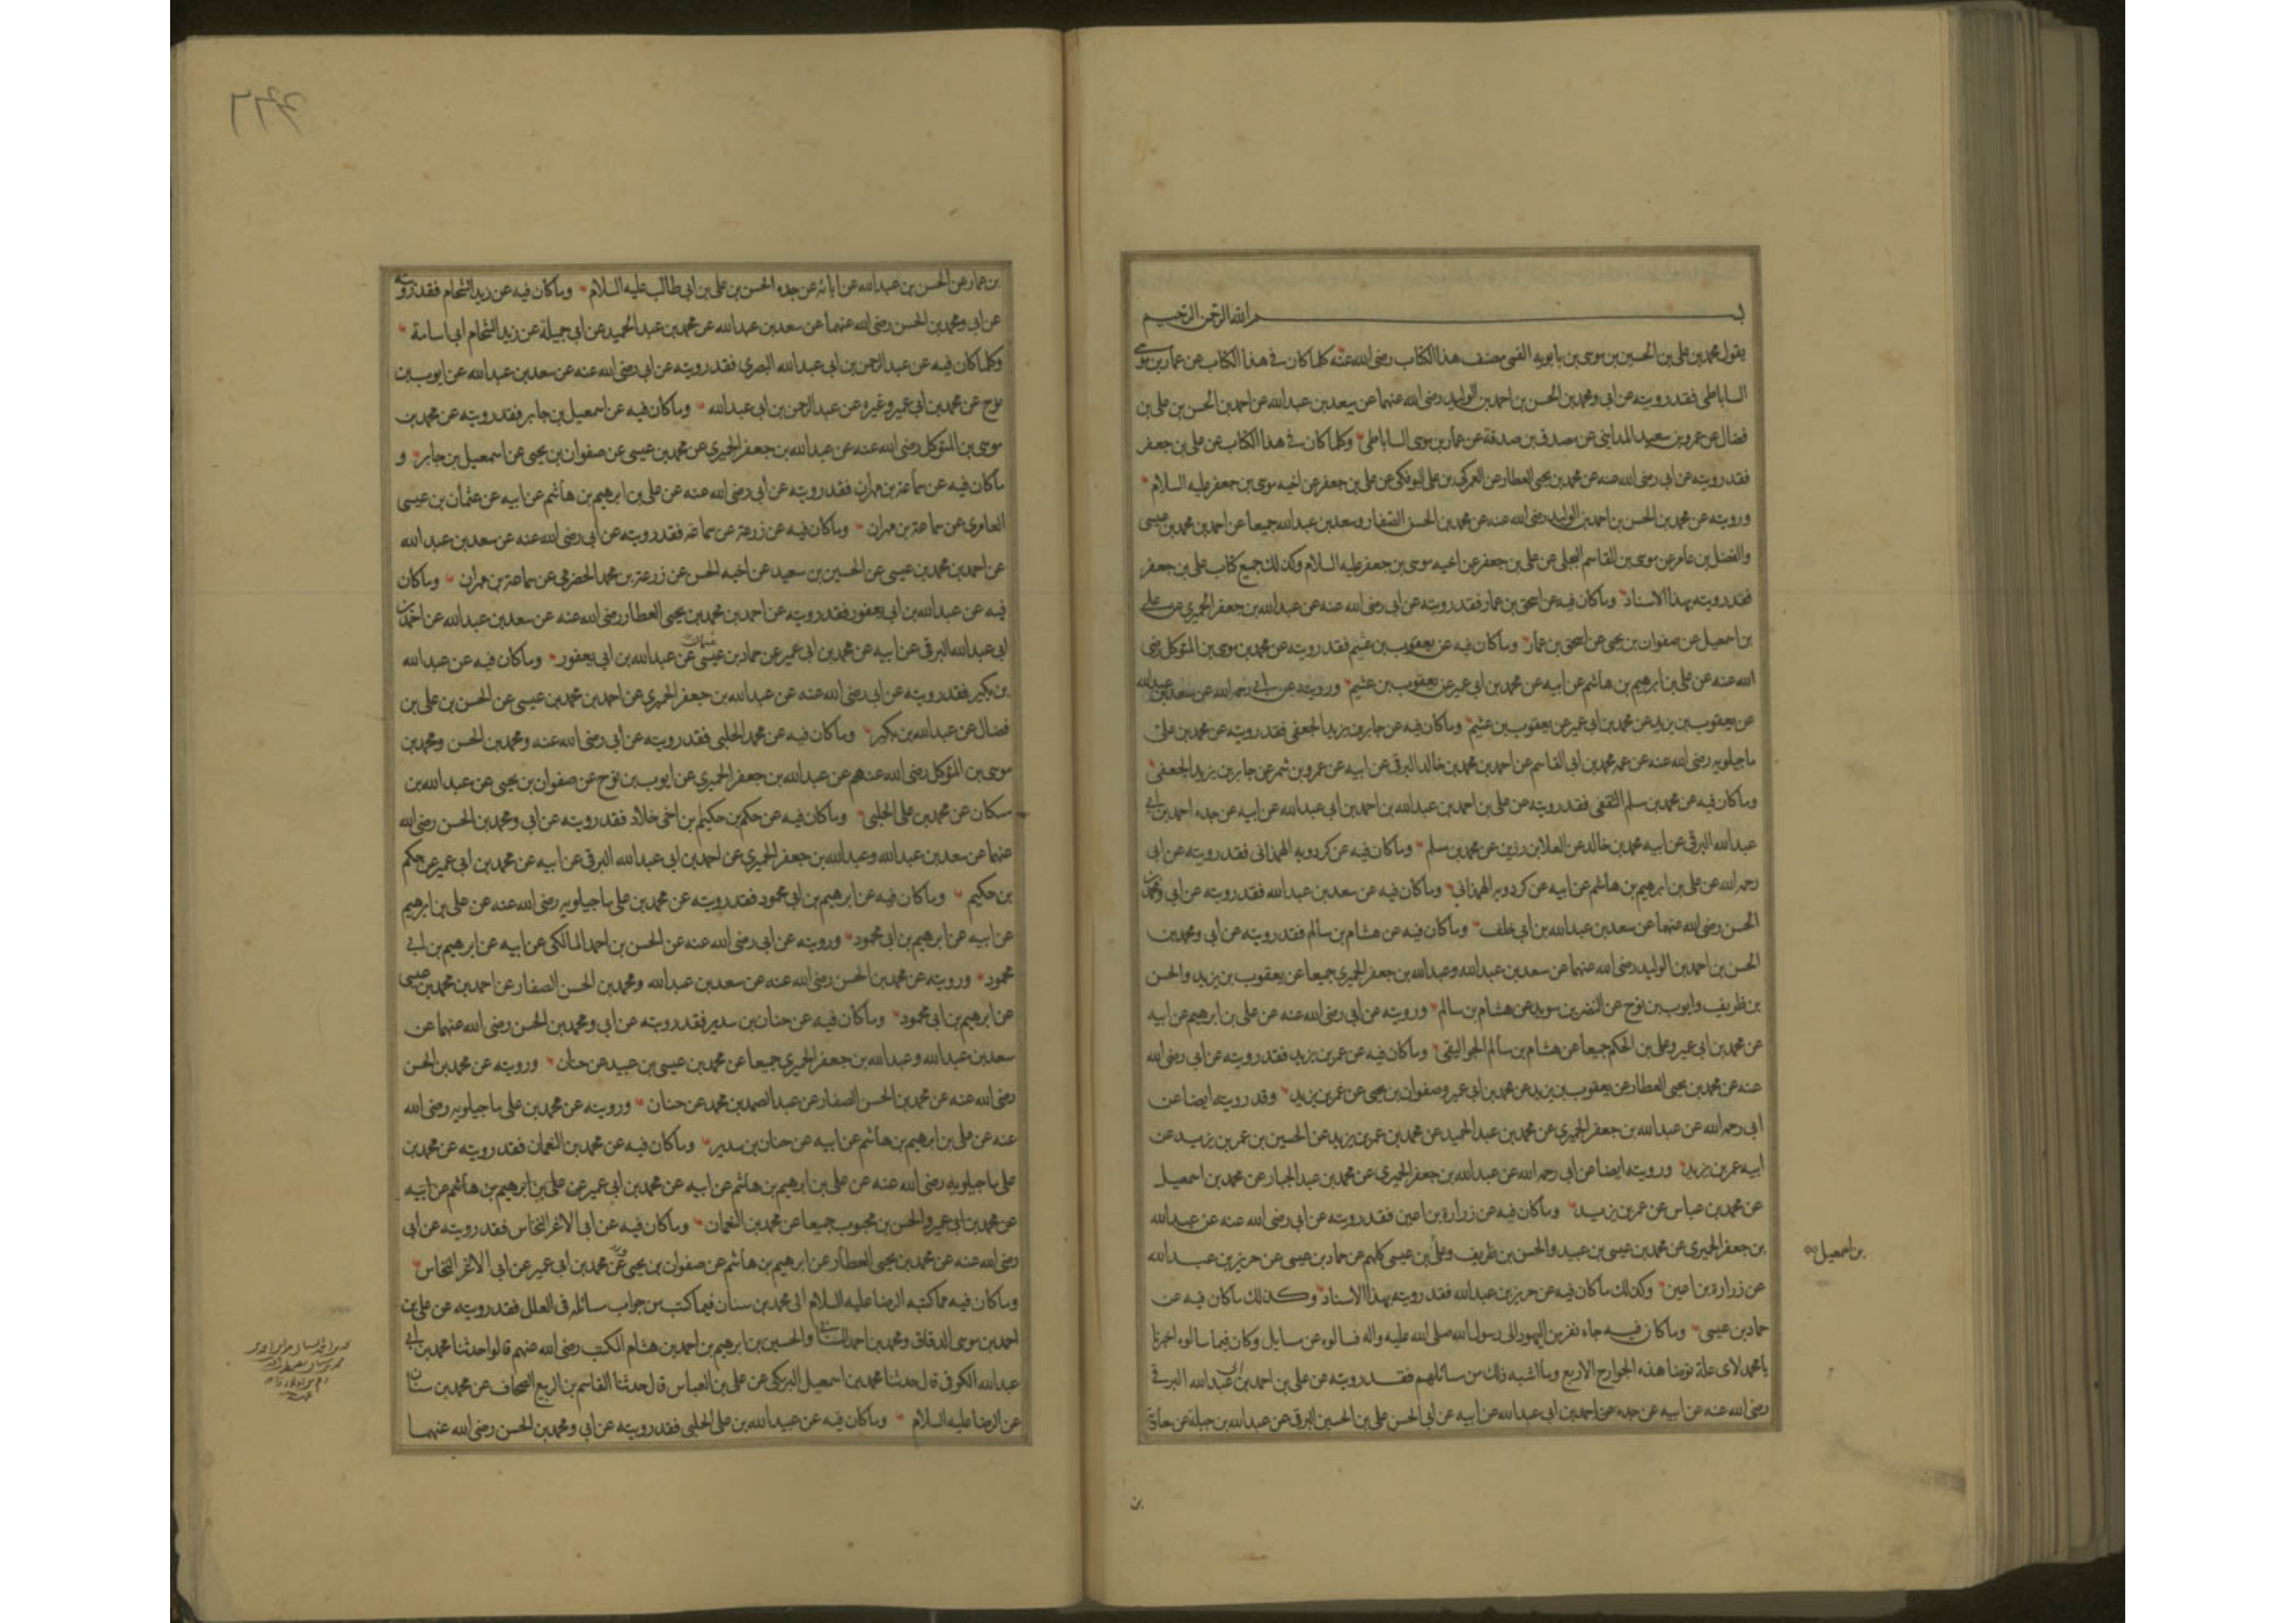 بسم الله الرحمن الرحيم
يقول محمد بن علي بن الحسين بن موسى بن بابويه القمي مصنف هذا الكتاب رضي الله عنه كلما كان في هذا الكتاب عن عمار بن موسى
الساباطي فقد رويته عن ابي ومحمد بن الحسن بن احمد بن الوليد رضي الله عنهما عن سعد بن عبد الله عن احمد بن الحسن بن علي بن
فضال عن عمرو بن سعيد المدايني عن مصدق بن صدقة عن عمار بن موسى الساباطي وكلما كان في هذا الكتاب عن علي بن جعفر
فقد رويته عن ابي رضي الله عنه عن محمد بن يحيى العطار عن العمركي بن علي البوفكي عن علي بن جعفر عن اخيه موسى بن جعفر عليه السلام
ورويته عن محمد بن الحسن بن احمد بن الوليد رضي الله عنه عن محمد بن الحسن الصفار وسعد بن عبد الله جميعا عن احمد بن محمد بن عيسى
والفضل بن عامر عن موسى بن القاسم البجلي عن علي بن جعفر عن اخيه موسى بن جعفر عليه السلام وكذلك جميع كتاب علي بن جعفر
فقد رويته بهذا الاسناد وما كان فيه عن اسحق بن عمار فقد رويته عن ابي رضي الله عنه عن عبد الله بن جعفر الحميري عن علي
بن اسمعيل عن صفوان بن يحيى عن اسحق بن عمار وما كان فيه عن يعقوب بن عثيم فقد رويته عن محمد بن موسى بن المتوكل رضي
الله عنه عن علي بن ابرهيم بن هاشم عن ابيه عن محمد بن ابي عمير عن يعقوب بن عثيم ورويته عن ابي رحمه الله عن سعد بن عبد الله
عن يعقوب بن يزيد عن محمد بن ابي عمير عن يعقوب بن عثيم وما كان فيه عن جابر بن يزيد الجعفي فقد رويته عن محمد بن علي
ماجيلويه رضي الله عنه عن عمه محمد بن ابي القاسم عن احمد بن محمد بن خالد البرقي عن ابيه عن عمرو بن شمر عن جابر بن يزيد الجعفي
وما كان فيه عن محمد بن مسلم الثقفي فقد رويته عن علي بن احمد بن عبد الله بن احمد بن ابي عبد الله عن ابيه عن جده احمد بن ابي
عبد الله البرقي عن ابيه محمد بن خالد عن العلا بن رزين عن محمد بن مسلم وما كان فيه عن كردويه الهمداني فقد رويته عن ابي
رحمه الله عن علي بن ابرهيم بن هاشم عن ابيه عن كردويه الهمداني وما كان فيه عن سعد بن عبد الله فقد رويته عن ابي ومحمد بن
الحسن رضي الله عنهما عن سعد بن عبد الله بن ابي خلف وما كان فيه عن هشام بن سالم فقد رويته عن ابي ومحمد بن
الحسن بن احمد بن الوليد رضي الله عنهما عن سعد بن عبد الله وعبد الله بن جعفر الحميري جميعا عن يعقوب بن يزيد والحسن
بن ظريف وايوب بن نوح عن النضر بن سويد عن هشام بن سالم ورويته عن ابي رضي الله عنه عن علي بن ابرهيم عن ابيه
عن محمد بن ابي عمير وعلي بن الحكم جميعا عن هشام بن سالم الجواليقي وما كان فيه عن عمر بن يزيد فقد رويته عن ابي رضي الله
عنه عن محمد بن يحيى العطار عن يعقوب بن يزيد عن محمد بن ابي عمير وصفوان بن يحيى عن عمر بن يزيد وقد رويته ايضا عن
ابي رحمه الله عن عبد الله بن جعفر الحميري عن محمد بن عبد الحميد عن محمد بن عمر بن يزيد عن الحسين بن عمر بن يزيد عن
ابيه عمر بن يزيد ورويته ايضا عن ابي رحمه الله عن عبد الله بن جعفر الحميري عن محمد بن عبد الجبار عن محمد بن اسمعيل
عن محمد بن عباس عن عمر بن يزيد وما كان فيه عن زرارة بن اعين فقد رويته عن ابي رضي الله عنه عن عبد الله
بن جعفر الحميري عن محمد بن عيسى بن عبيد والحسن بن ظريف وعلي بن عيسى كلهم عن حماد بن عيسى عن حريز بن عبد الله
بن اسمعيل
عن زرارة بن اعين وكذلك ما كان فيه عن حريز بن عبد الله فقد رويته بهذا الاسناد وكذلك ما كان فيه عن
حماد بن عيسى وما كان فيه جاء نفر من اليهود الى رسول الله صلى الله عليه واله فسالوه عن مسايل وكان فيما سالوه اخبرنا
يا محمد لاي علة توضا هذه الجوارح الاربع وما اشبه ذلك من مسائلهم فقد رويته عن علي بن احمد بن عبد الله البرقي
رضي الله عنه عن ابيه عن جده عن احمد بن ابي عبد الله عن ابيه عن ابي الحسن علي بن الحسين البرقي عن عبد الله بن جبلة عن معاوية
بن
بن عمار عن الحسن بن عبد الله عن ابائه عن جده الحسن بن علي بن ابي طالب عليه السلام وما كان فيه عن زيد الشحام فقد رويته
عن ابي ومحمد بن الحسن رضي الله عنهما عن سعد بن عبد الله عن محمد بن عبد الحميد عن ابي جميلة عن زيد الشحام ابي اسامة
وكلما كان فيه عن عبد الرحمن بن ابي عبد الله البصري فقد رويته عن ابي رضي الله عنه عن سعد بن عبد الله عن ايوب بن
نوح عن محمد بن ابي عمير وغيره عن عبد الرحمن بن ابي عبد الله وما كان فيه عن اسمعيل بن جابر فقد رويته عن محمد بن
موسى بن المتوكل رضي الله عنه عن عبد الله بن جعفر الحميري عن محمد بن عيسى عن صفوان بن يحيى عن اسمعيل بن جابر و
ما كان فيه عن سماعة بن مهران فقد رويته عن ابي رضي الله عنه عن علي بن ابرهيم بن هاشم عن ابيه عن عثمان بن عيسى
العامري عن سماعة بن مهران وما كان فيه عن زرعة عن سماعة فقد رويته عن ابي رضي الله عنه عن سعد بن عبد الله
عن احمد بن محمد بن عيسى عن الحسين بن سعيد عن اخيه الحسن عن زرعة بن محمد الحضرمي عن سماعة بن مهران وما كان
فيه عن عبد الله بن ابي يعفور فقد رويته عن احمد بن محمد بن يحيى العطار رضي الله عنه عن سعد بن عبد الله عن احمد بن
ابي عبد الله البرقي عن ابيه عن محمد بن ابي عمير عن حماد بن عيسى عثمان عن عبد الله بن ابي يعفور وما كان فيه عن عبد الله
بن بكير فقد رويته عن ابي رضي الله عنه عن عبد الله بن جعفر الحميري عن احمد بن محمد بن عيسى عن الحسن بن علي بن
فضال عن عبد الله بن بكير وما كان فيه عن محمد الحلبي فقد رويته عن ابي رضي الله عنه ومحمد بن الحسن ومحمد بن
موسى بن المتوكل رضي الله عنهم عن عبد الله بن جعفر الحميري عن ايوب بن نوح عن صفوان بن يحيى عن عبد الله بن
مسكان عن محمد بن علي الحلبي وما كان فيه عن حكم بن حكيم بن اخي خلاد فقد رويته عن ابي ومحمد بن الحسن رضي الله
عنهما عن سعد بن عبد الله وعبد الله بن جعفر الحميري عن احمد بن ابي عبد الله البرقي عن ابيه عن محمد بن ابي عمير عن حكم
بن حكيم وما كان فيه عن ابرهيم بن ابي محمود فقد رويته عن محمد بن علي ماجيلويه رضي الله عنه عن علي بن ابرهيم
عن ابيه عن ابرهيم بن ابي محمود ورويته عن ابي رضي الله عنه عن الحسن بن احمد المالكي عن ابيه عن ابرهيم بن ابي
محمود ورويته عن محمد بن الحسن رضي الله عنه عن سعد بن عبد الله ومحمد بن الحسن الصفار عن احمد بن محمد بن عيسى
عن ابرهيم بن ابي محمود وما كان فيه عن حنان بن سدير فقد رويته عن ابي ومحمد بن الحسن رضي الله عنهما عن
سعد بن عبد الله وعبد الله بن جعفر الحميري جميعا عن محمد بن عيسى بن عبيد عن حنان ورويته عن محمد بن الحسن
رضي الله عنه عن محمد بن الحسن الصفار عن عبد الصمد بن محمد عن حنان ورويته عن محمد بن علي ماجيلويه رضي الله
عنه عن علي بن ابرهيم بن هاشم عن ابيه عن حنان بن سدير وما كان فيه عن محمد بن النعمان فقد رويته عن محمد بن
علي ماجيلويه رضي الله عنه عن علي بن ابرهيم بن هاشم عن ابيه عن محمد بن ابي عمير عن علي بن ابرهيم بن هاشم عن ابيه
عن محمد بن ابي عمير والحسن بن محبوب جميعا عن محمد بن النعمان وما كان فيه عن ابي الاغر النخاس فقد رويته عن ابي
رضي الله عنه عن محمد بن يحيى العطار عن ابرهيم بن هاشم عن صفوان بن يحيى عن محمد بن ابي عمير عن ابي الاغر النخاس
وما كان فيه مما كتبه الرضا عليه السلام الى محمد بن سنان فيما كتب من جواب مسائله في العلل فقد رويته عن علي بن
احمد بن موسى الدقاق ومحمد بن احمد السناني والحسين بن ابرهيم بن احمد بن هشام المكتب رضي الله عنهم قالوا حدثنا محمد بن ابي
عبد الله الكوفي قال حدثنا محمد بن اسمعيل البرمكي عن علي بن العباس قال حدثنا القاسم بن الربيع الصحاف عن محمد بن سنان
عن الرضا عليه السلام وما كان فيه عن عبيد الله بن علي الحلبي فقد رويته عن ابي ومحمد بن الحسن رضي الله عنهما